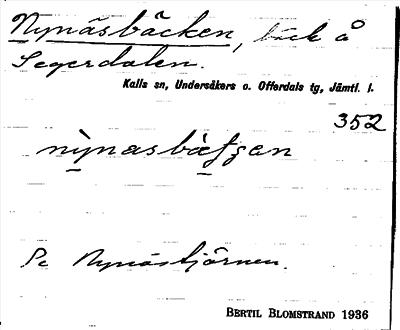 Nynäsbäcken, bäck å
Segerdalen.
Kalls sn, Undersåkers o. Offerdals tg, Jämtl. l.
352
Se Nynästjärnen.
BERTIL BLOMSTRAND 1936